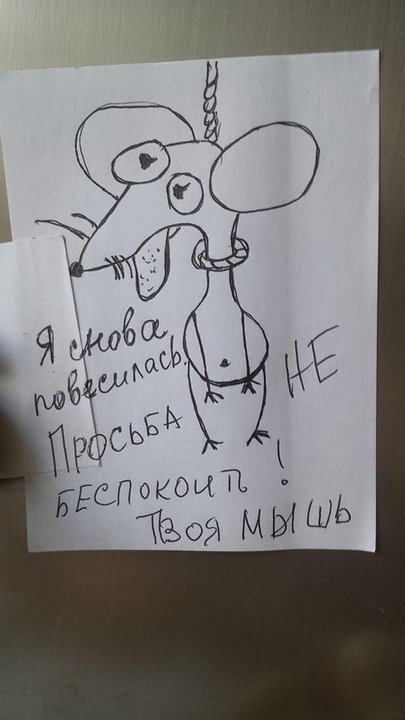 Я снова
повесилась.
ПРОСЬБА НЕ
БЕСПОКОИТЬ!
ТВОЯ МЫШЬ